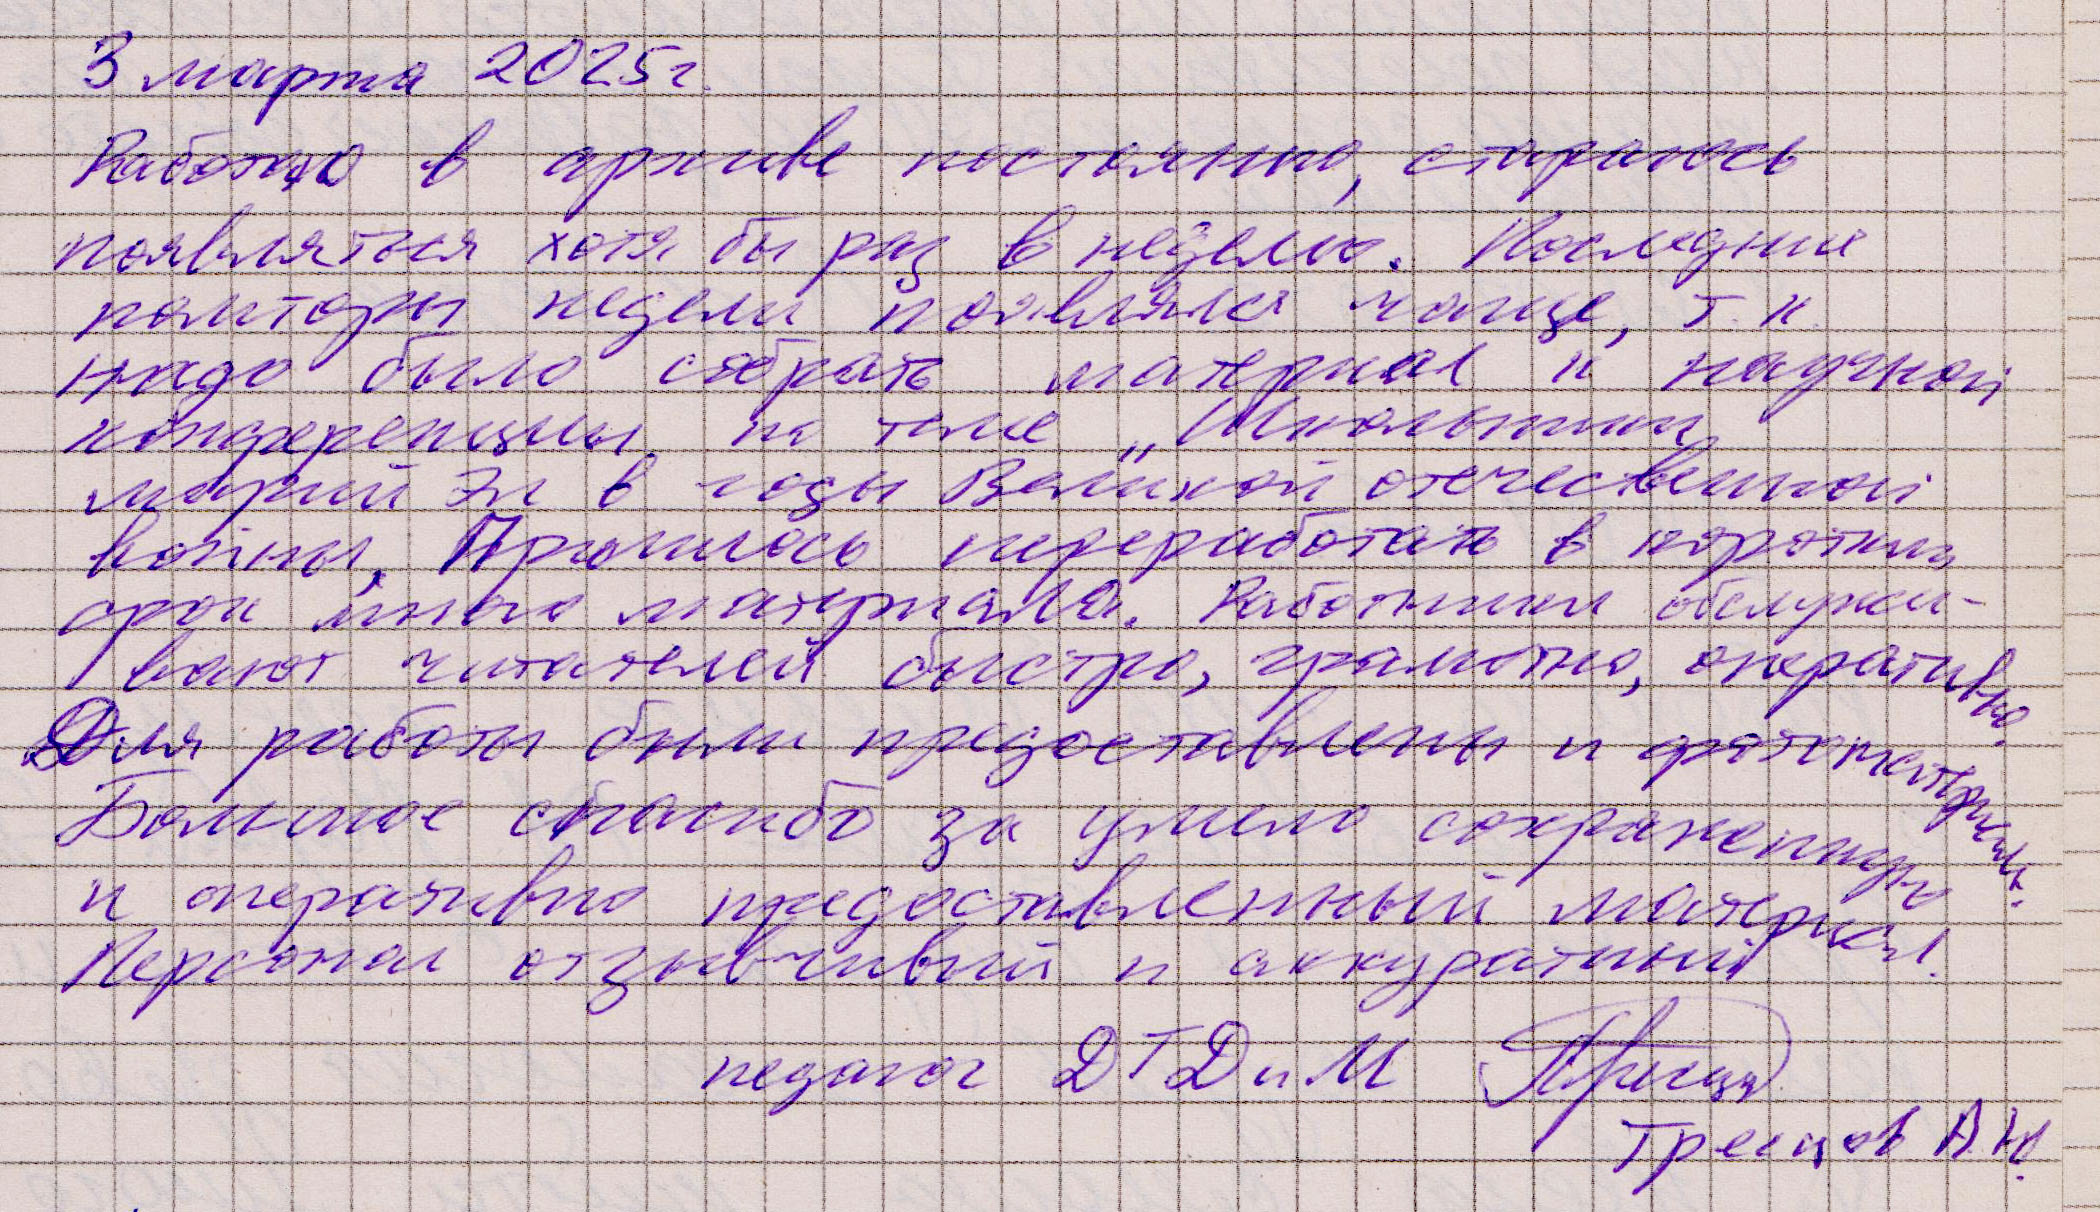 3 марта 2025г.
Работаю в архиве постоянно, стараюсь
появляться хотя бы раз в неделю. Последние
полторы недели появлялся чаще, т.к.
надо было собрать материал к научной
конференции по теме „Школьники
Марий Эл в годы Великой отечественной
войны„ Пришлось переработать в короткий
срок много материала. Работники обслужи-
вают читателей быстро, грамотно, оперативно.
Для работы были предоставлены и фотоматериалы.
Большое спасибо за умело сохраненную
и оперативно предоставленный материал.
Персонал отзывчивый и аккуратный
педагог ДТДиМ
Трещов А.Ю.